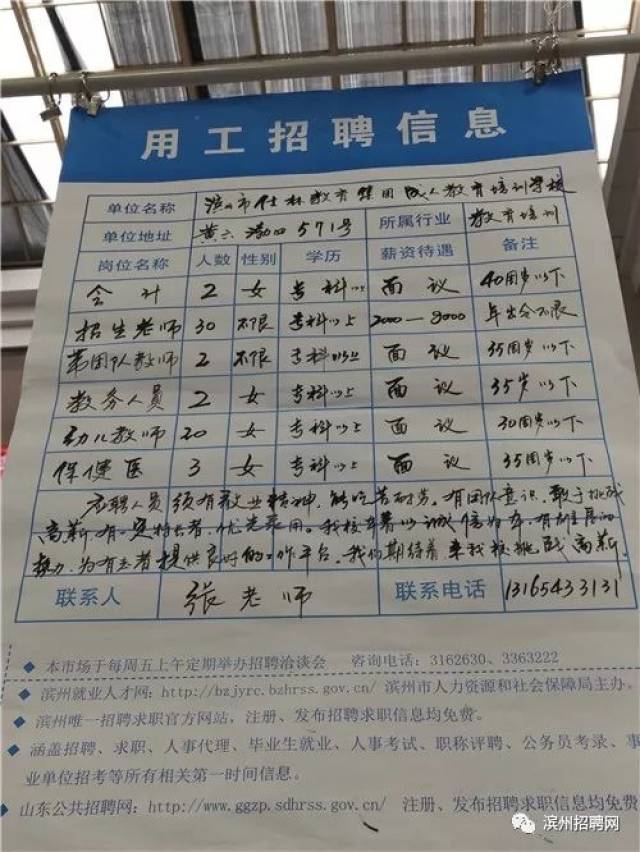 用工招聘信息
单位名称 滨州市仕林教育集团成人教育培训学校
单位地址 黄六渤四571号 所属行业 教育培训
岗位名称 人数 性别 学历 薪资待遇 备注
会计 2 女 专科以上 面议 40周岁以下
招生老师 30 不限 专科以上 2000—8000 年龄不限
2 不限 专科以上 面议 35周岁以下
教务人员 2 女 专科以上 面议 35岁以下
幼儿教师 20 女 专科以上 面议 30周岁以下
保健医 3 女 专科以上 面议 35周岁以下
应聘人员须有敬业精神,能吃苦耐劳。有团队意识、敢于挑战
高薪。有一定特长者,优先录用。我校本着以诚信为本,有雄厚的
势力,为有志者提供良好的工作平台。我们期待着来我校挑战高薪。
联系人 张老师 联系电话 13165433131
◆ 本市场于每周五上午定期举办招聘洽谈会 咨询电话:3162630、3363222
◆ 滨州就业人才网:http://bzjyrc.bzhrss.gov.cn/ 滨州市人力资源和社会保障局主办。
◆ 滨州唯一招聘求职官方网站,注册、发布招聘求职信息均免费。
◆ 涵盖招聘、求职、人事代理、毕业生就业、人事考试、职称评聘、公务员考录、事
业单位招考等所有相关第一时间信息。
◆ 山东公共招聘网:http://www.ggzp.sdhrss.gov.cn/ 注册、发布招聘求职信息均免费
滨州招聘网